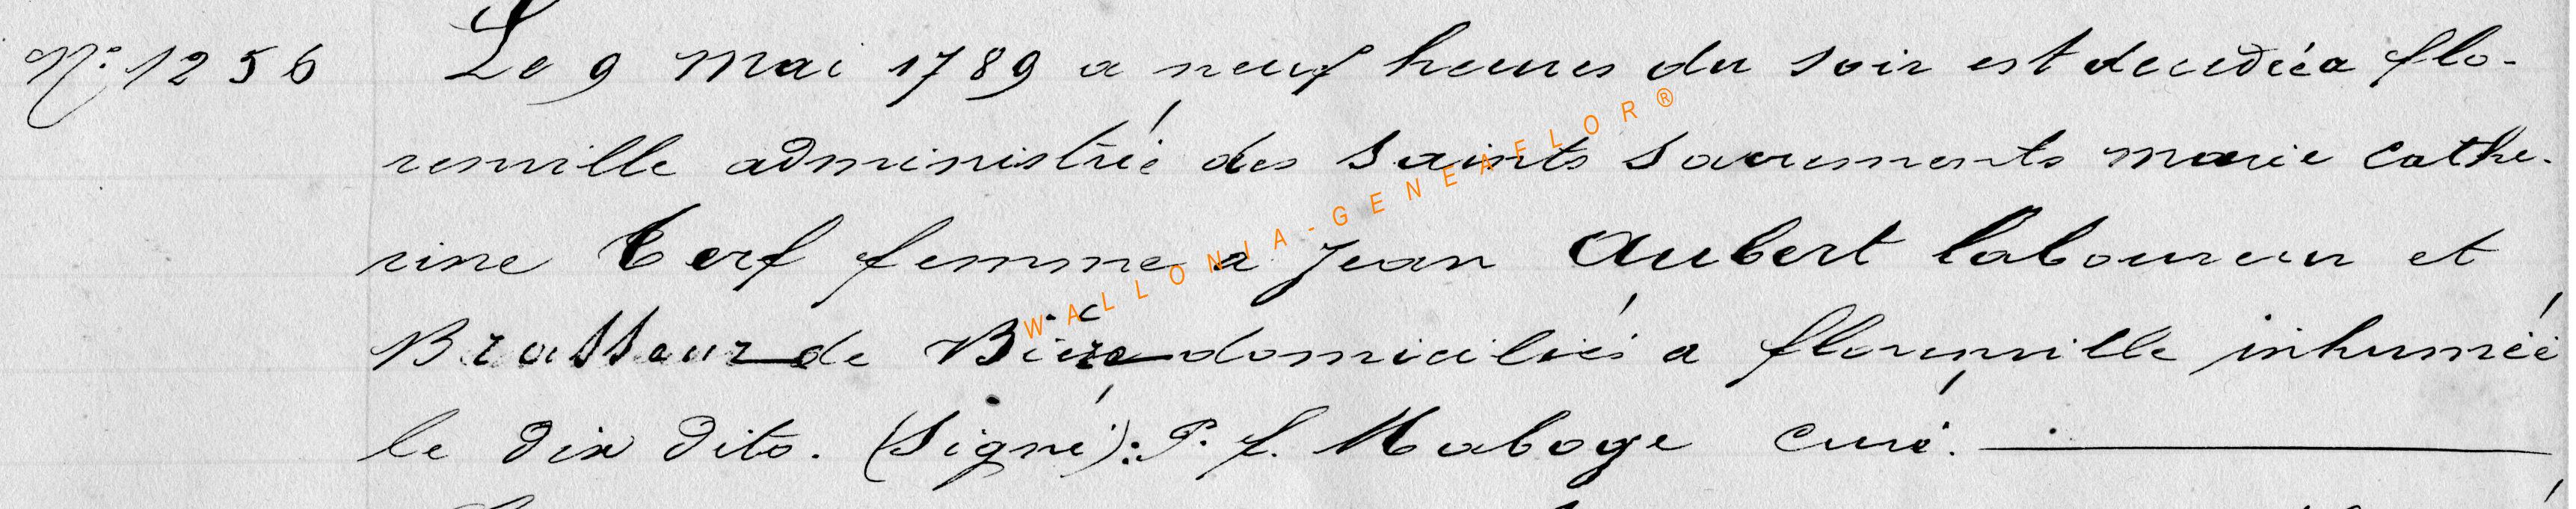 N° 1256 Le 9 Mai 1789 a neuf heures du soir est decedée a flo-
renville administrée des saints sacrements marie cathe-
rine Terf femme a Jean Aubert laboureur et
Brasseur de Biére domiciliés a florenville inhumée
le dix dito. (Signé): P. f. Maboge curé.
WALLONIA-GENEAFLOR®